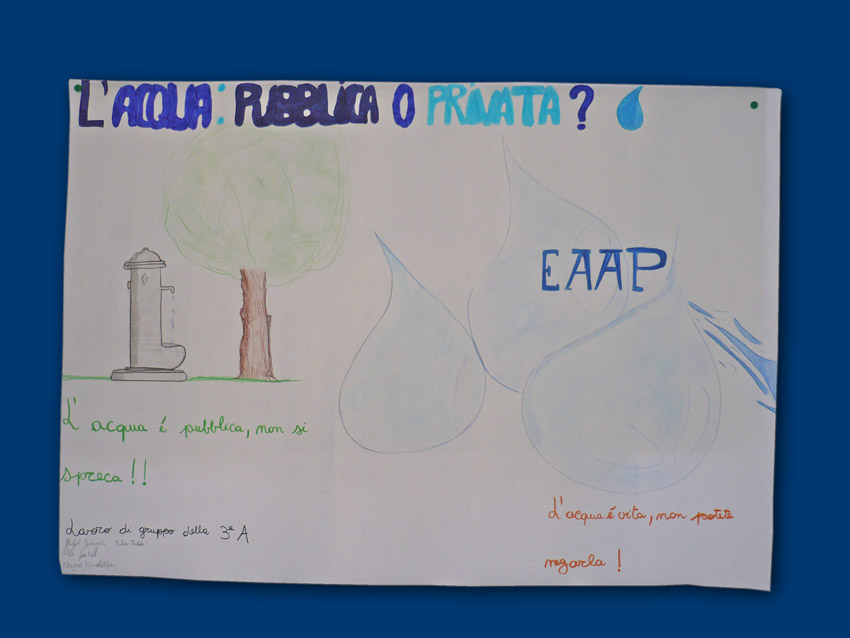 L'ACQUA: PUBBLICA O PRIVATA?
EAAP
L'acqua é pubblica, non si
spreca!!
Lavoro di gruppo della 3ª A.
L'acqua é vita, non potete
negarla!